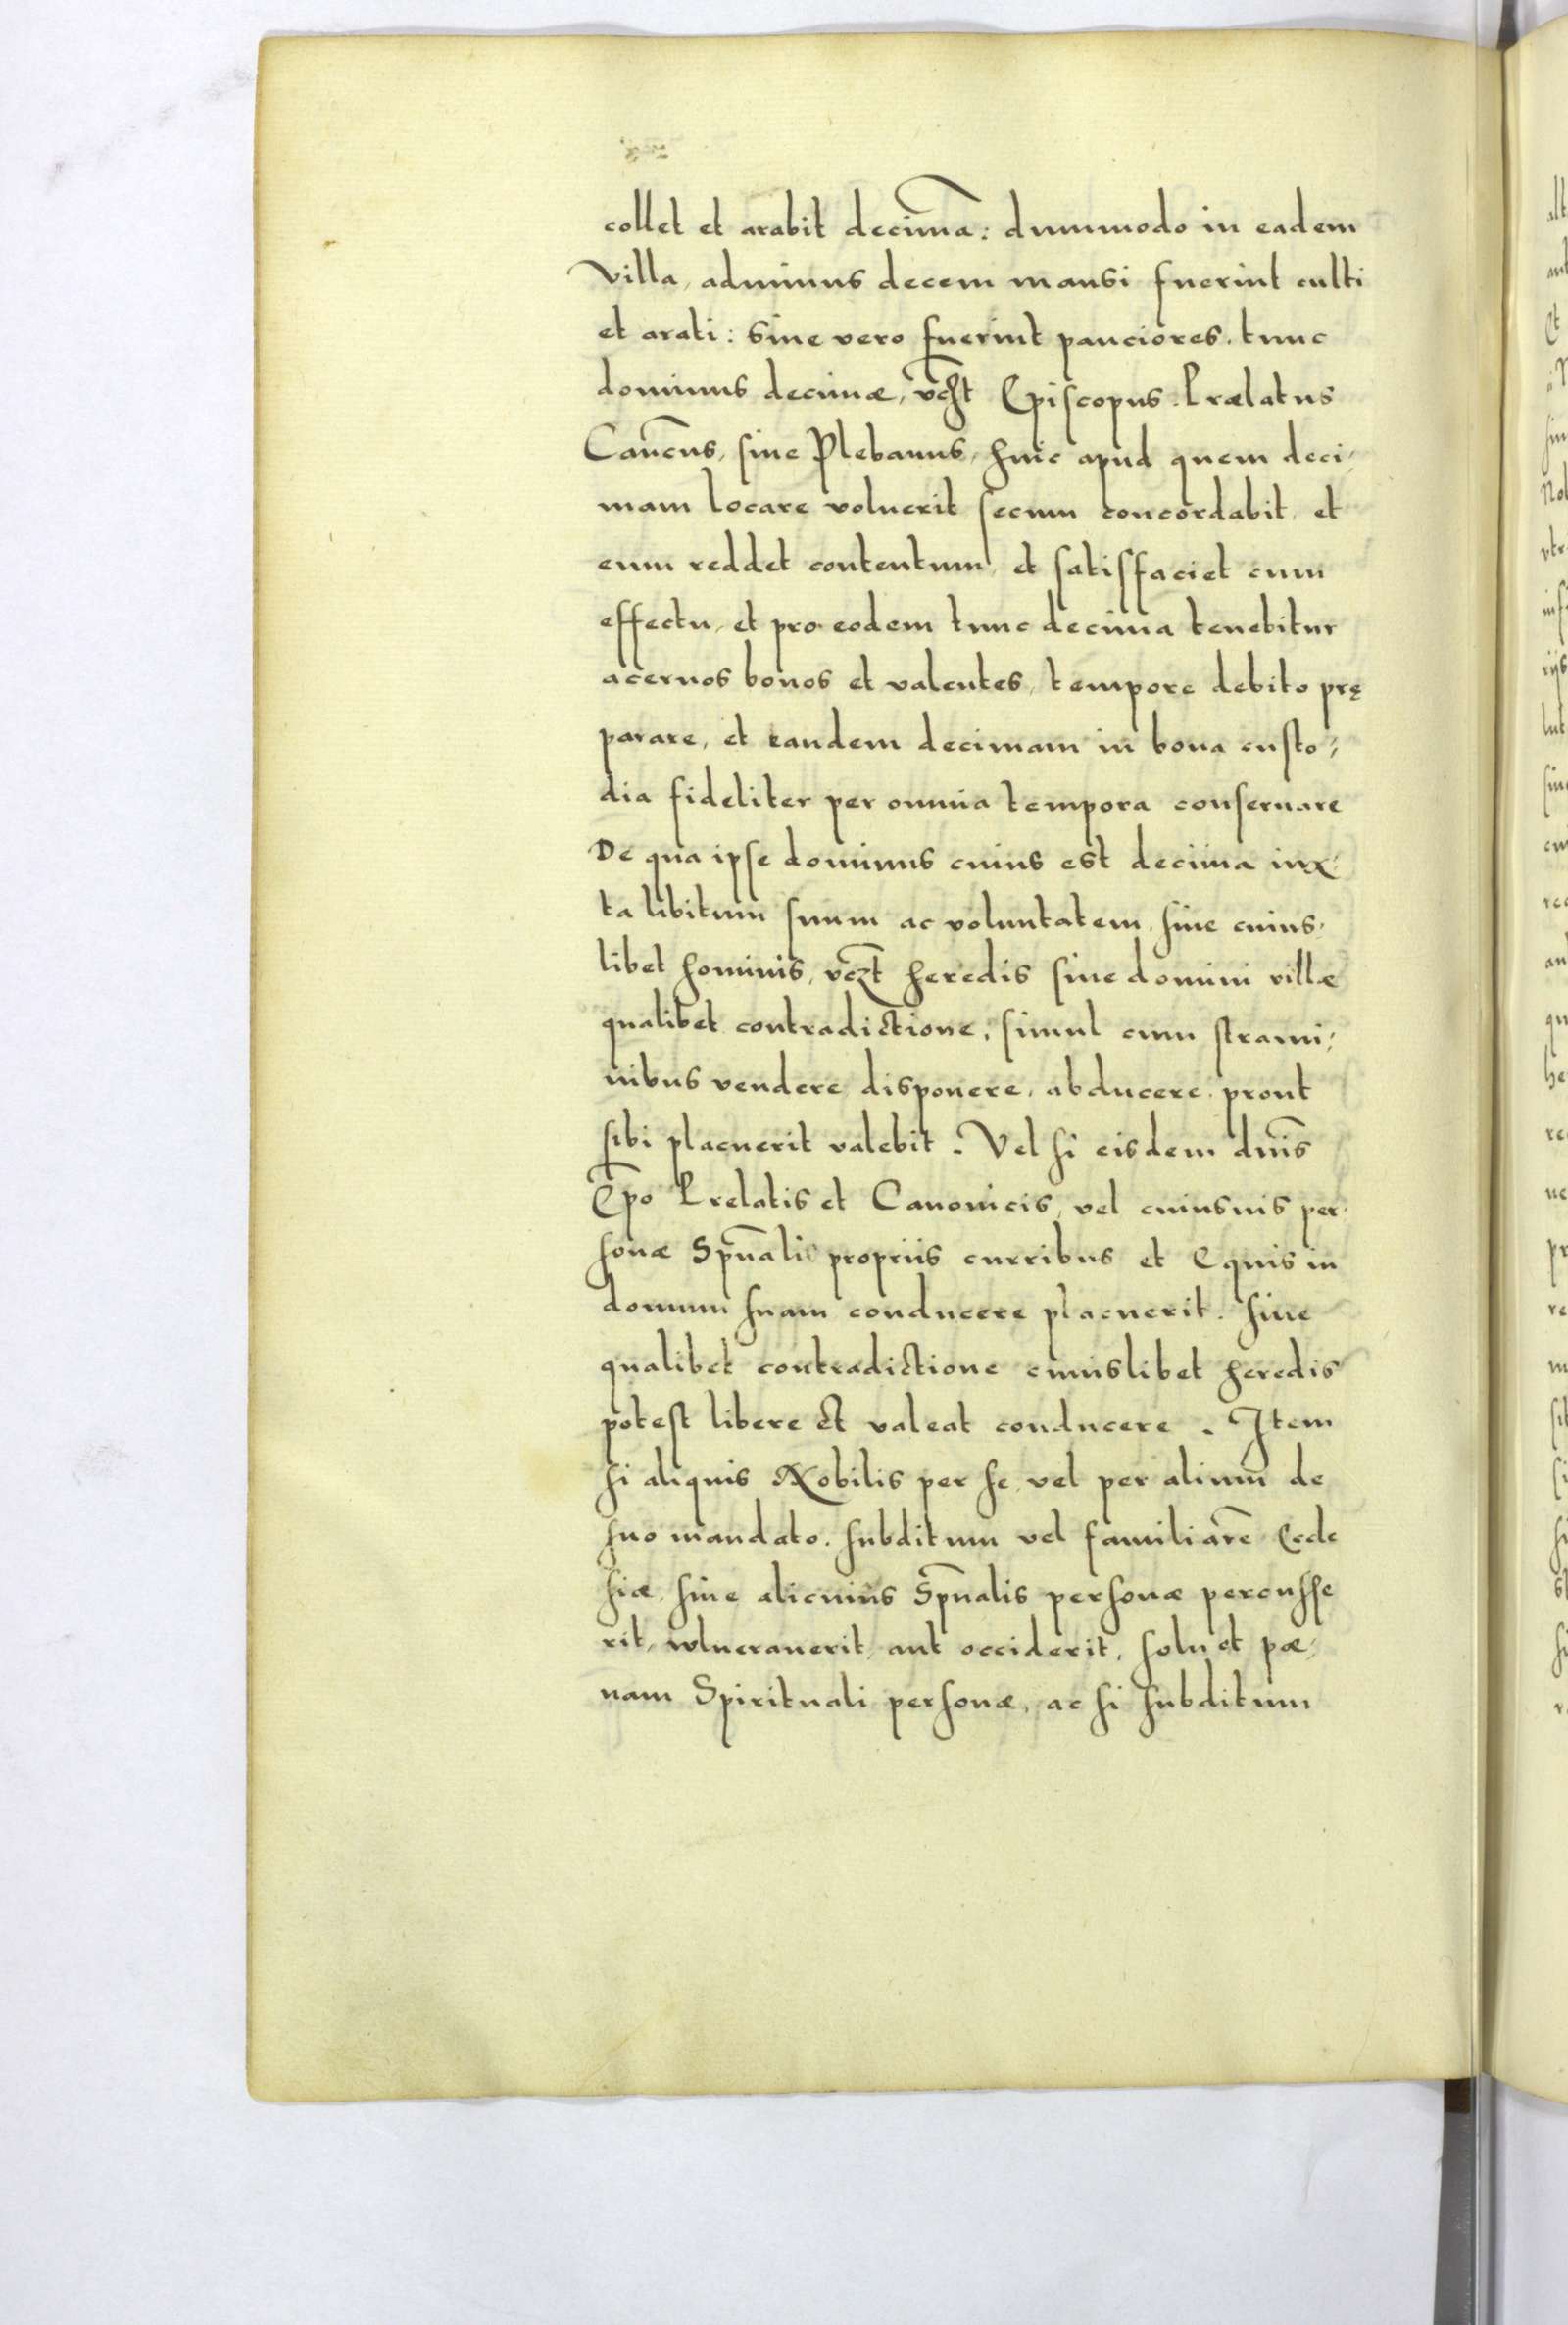 collet et arabit decimā: dummodo in eadem
villa, adminus decem mansi fuerint culti
et arati: Sine vero fuerint pauciores, tunc
dominus decimæ, vcz̄t Episcopus Prælatus
Canōcus, siue Plebanus, huic apud quem deci,
mam locare voluerit secum concordabit, et
eum reddet contentum, et satisfaciet cum
effectu, et pro eodem tunc decima tenebitur
aceruos bonos et valentes, tempore debito prę
parare, et eandem decimam in bona custo,
dia fideliter per omnia tempora conseruare
De qua ipse dominus cuius est decima iux,
ta libitum suum ac voluntatem, sine cuius,
libet hominis, vcz̄t heredis siue domini villæ
qualibet contradictione, simul cum strami,
nibus vendere disponere, abducere, prout
sibi placuerit valebit. Vel si eisdem dnīs
Ep̄o Prelatis et Canonicis, vel cuiusuis per,
sonæ Spūali propriis curribus et Equis in
domum suam conducere placuerit. Sine
qualibet contradictione cuiuslibet heredis
potest libere et valeat conducere. Item
si aliquis Nobilis per se, vel per alium de
suo mandato, subditum vel familiarē Eccle
siæ, siue alicuius Spūalis personæ percusse
rit, wlnerauerit, aut occiderit, soluet pœ,
nam Spirituali personæ, ac si subditum